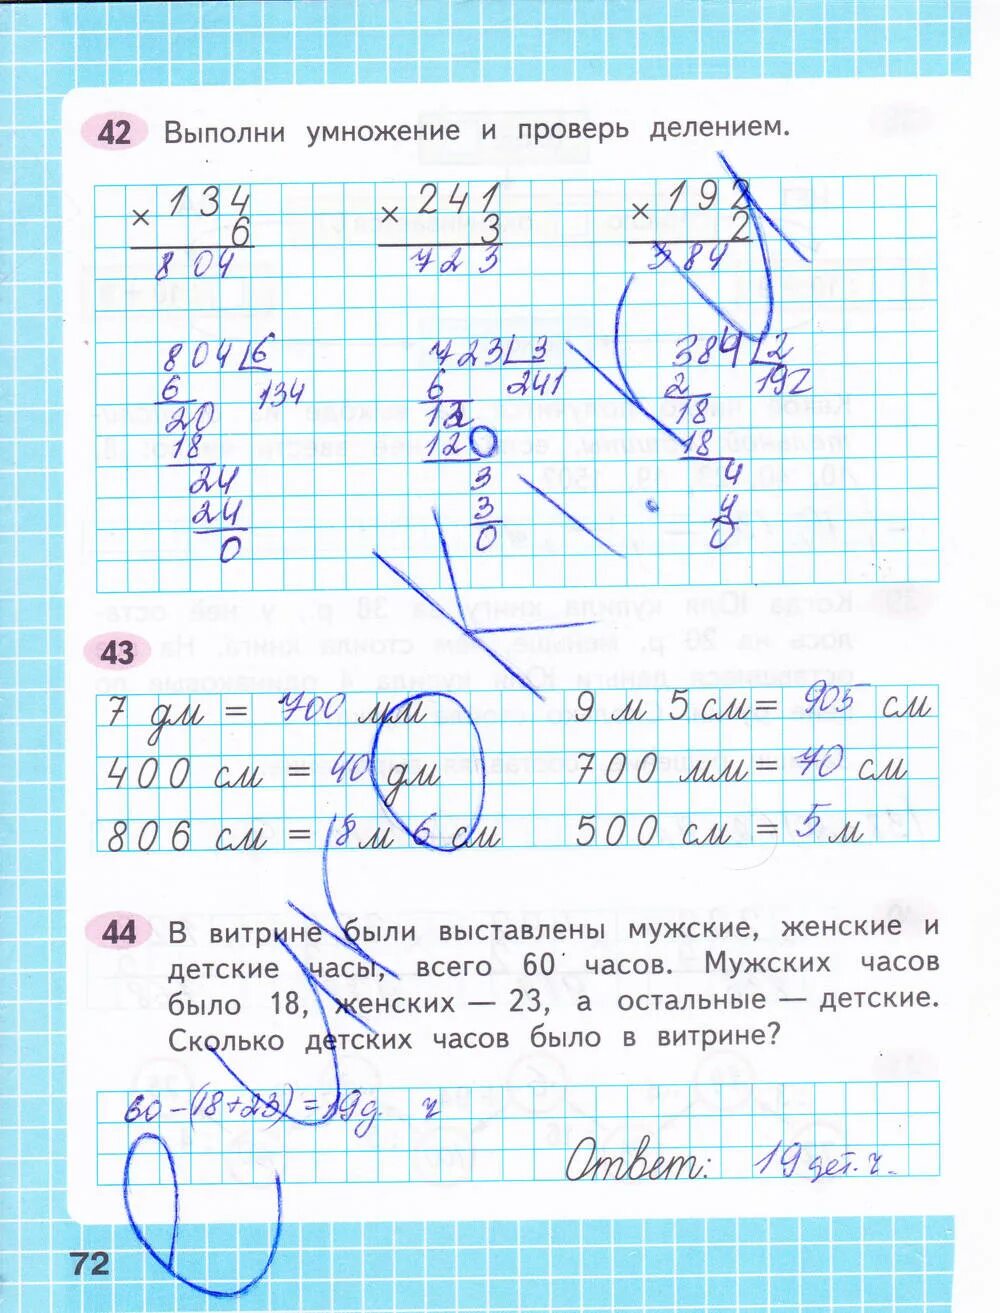 42 Выполни умножение и проверь делением.
× 134 × 241 × 192
6 3 2
804 723 384
804 6 723 3 384 2
6 134 6 241 2 192
20 12 18
18 12 18
24 3 4
24 3 4
0 0 0
43
7 дм = 700 мм 9 м 5 см = 905 см
400 см = 40 дм 700 мм = 70 см
806 см = 8 м 6 см 500 см = 5 м
44 В витрине были выставлены мужские, женские и
детские часы, всего 60 часов. Мужских часов
было 18, женских — 23, а остальные — детские.
Сколько детских часов было в витрине?
60-(18+23)=19д. ч
Ответ: 19 дет. ч.
72